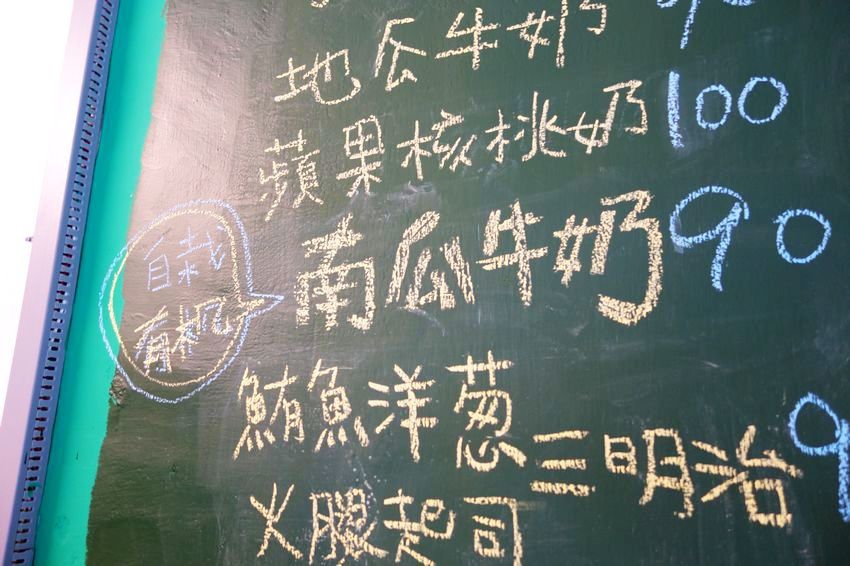 地瓜牛奶
蘋果核桃奶100
自栽
有机
南瓜牛奶90
鮪魚洋葱三明治9
火腿起司